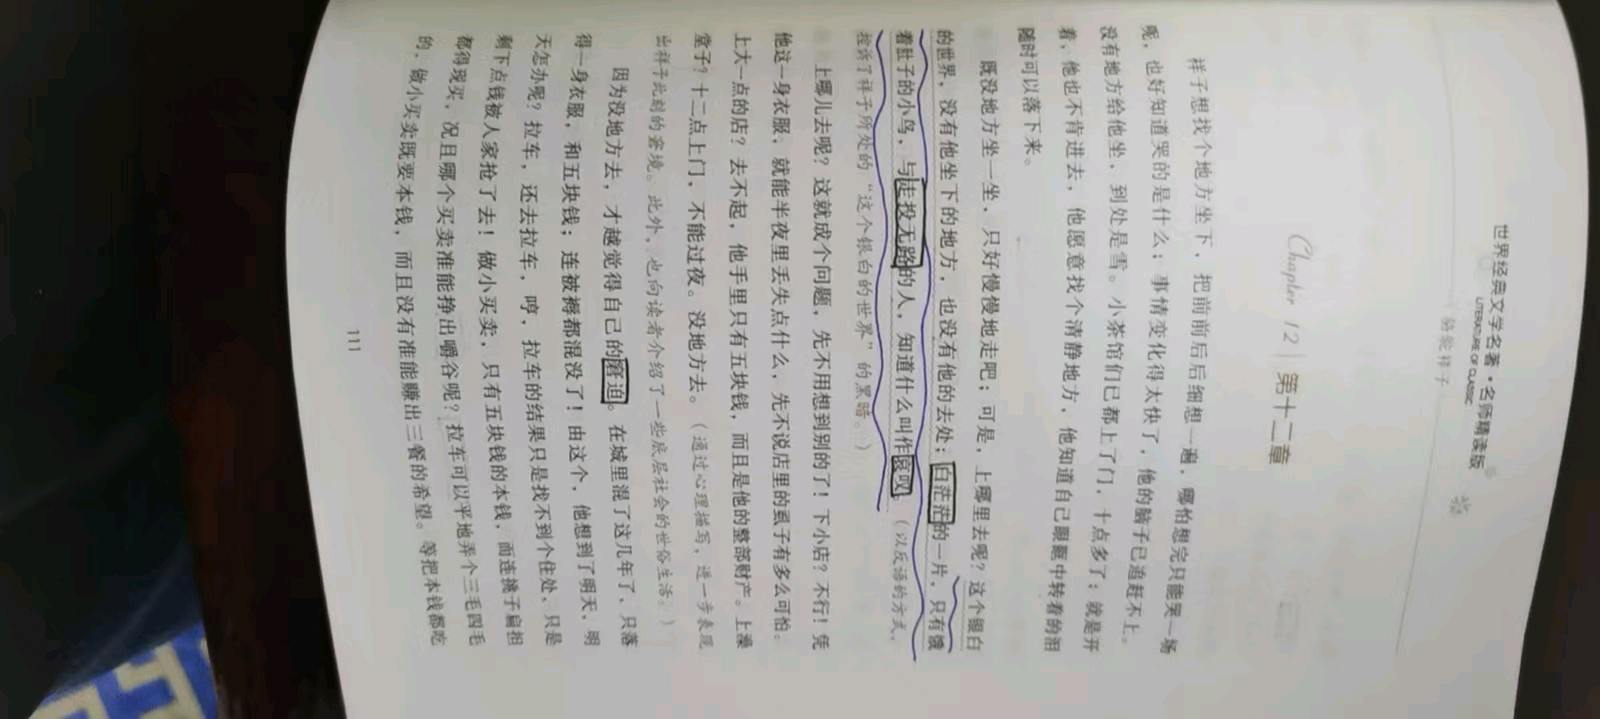 世界经典文学名著·名师精读版
LITERATURE OF CLASSIC
骆驼祥子
Chapter 12 | 第十二章
祥子想找个地方坐下，把前前后后细想一遍，哪怕想完只能哭一场
呢，也好知道哭的是什么；事情变化得太快了，他的脑子已追赶不上。
没有地方给他坐，到处是雪。小茶馆们已都上了门，十点多了；就是开
着，他也不肯进去，他愿意找个清静地方，他知道自己眼眶中转着的泪
随时可以落下来。
既没地方坐一坐，只好慢慢地走吧；可是，上哪里去呢？这个银白
的世界，没有他坐下的地方，也没有他的去处；白茫茫的一片，只有饿
着肚子的小鸟，与走投无路的人，知道什么叫作哀叹。（以反语的方式，
控诉了祥子所处的“这个银白的世界”的黑暗。）
上哪儿去呢？这就成个问题，先不用想到别的了！下小店？不行！凭
他这一身衣服，就能半夜里丢失点什么，先不说店里的虱子有多么可怕。
上大一点的店？去不起，他手里只有五块钱，而且是他的整部财产。上澡
堂子？十二点上门，不能过夜。没地方去。（通过心理描写，进一步表现
出祥子此刻的窘境。此外，也向读者介绍了一些底层社会的世俗生活。）
因为没地方去，才越觉得自己的窘迫。在城里混了这几年了，只落
得一身衣服，和五块钱；连被褥都混没了！由这个，他想到了明天，明
天怎办呢？拉车，还去拉车，哼，拉车的结果只是找不到个住处，只是
剩下点钱被人家抢了去！做小买卖，只有五块钱的本钱，而连挑子扁担
都得现买，况且哪个买卖准能挣出嚼谷呢？拉车可以平地弄个三毛四毛
的，做小买卖既要本钱，而且没有准能赚出三餐的希望。等把本钱都吃
111